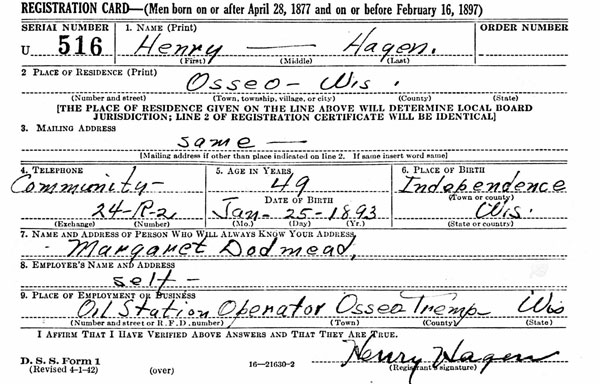 REGISTRATION CARD—(Men born on or after April 28, 1877 and on or before February 16, 1897)
SERIAL NUMBER 1. NAME (Print) ORDER NUMBER
U 516 Henry — Hagen.
(First) (Middle) (Last)
2 PLACE OF RESIDENCE (Print)
Osseo- Wis.
(Number and street) (Town, township, village, or city) (County) (State)
[THE PLACE OF RESIDENCE GIVEN ON THE LINE ABOVE WILL DETERMINE LOCAL BOARD
JURISDICTION; LINE 2 OF REGISTRATION CERTIFICATE WILL BE IDENTICAL]
3. MAILING ADDRESS
same —
[Mailing address if other than place indicated on line 2. If same insert word same]
4. TELEPHONE 5. AGE IN YEARS 6. PLACE OF BIRTH
Community- 49 Independence
DATE OF BIRTH (Town or county)
24-R-2 Jan- 25-1893 Wis.
(Exchange) (Number) (Mo.) (Day) (Yr.) (State or country)
7. NAME AND ADDRESS OF PERSON WHO WILL ALWAYS KNOW YOUR ADDRESS
Margaret Dodmead,
8. EMPLOYER'S NAME AND ADDRESS
self-
9. PLACE OF EMPLOYMENT OR BUSINESS
Oil Station Operator Osseo Tremp Wis
(Number and street or R. F. D. number) (Town) (County) (State)
I AFFIRM THAT I HAVE VERIFIED ABOVE ANSWERS AND THAT THEY ARE TRUE.
D. S. S. Form 1 Henry Hagen
(Revised 4-1-42) (over) 16—21630-2 (Registrant's signature)